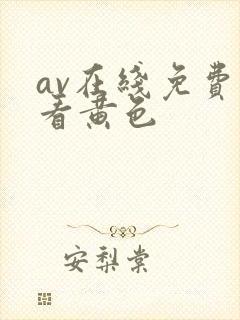 av在綫免費
看黄色
安梨棠